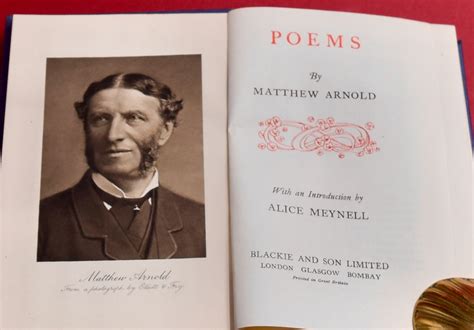 Matthew Arnold
From a photograph by Elliott & Fry.
POEMS
By
MATTHEW ARNOLD
With an Introduction by
ALICE MEYNELL
BLACKIE AND SON LIMITED
LONDON GLASGOW BOMBAY
Printed in Great Britain